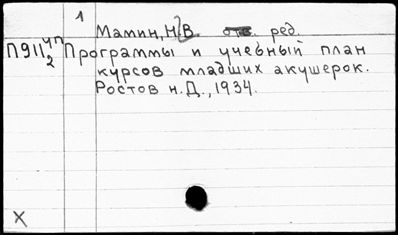 1
Мамин, Н.В. отв. ред.
П911 уп 2 Программы и учебный план
курсов младших акушерок.
Ростов н.Д., 1934.
X